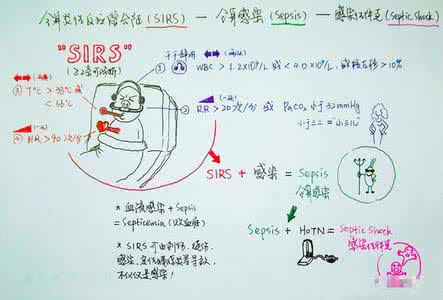 全身炎性反应综合征 (SIRS) — 全身感染 (Sepsis) — 感染性休克 (Septic Shock)
"SIRS"
(≥2条可诊断)
① WBC > 1.2×10⁹/L 或 < 4.0×10⁹/L, 或核左移 > 10%
③ T°C > 38°C 或
< 36°C
② RR > 20次/分 或 PaCO₂ 小于 32mmHg
小于三二 = "小三儿"
④ HR > 90次/分
SIRS + 感染 = Sepsis
全身感染
* 血液感染 + Sepsis
= Septicemia (败血症)
Sepsis + HoTN = Septic Shock
感染性休克
* SIRS 可由创伤、烧伤、
感染、
不仅仅是感染!